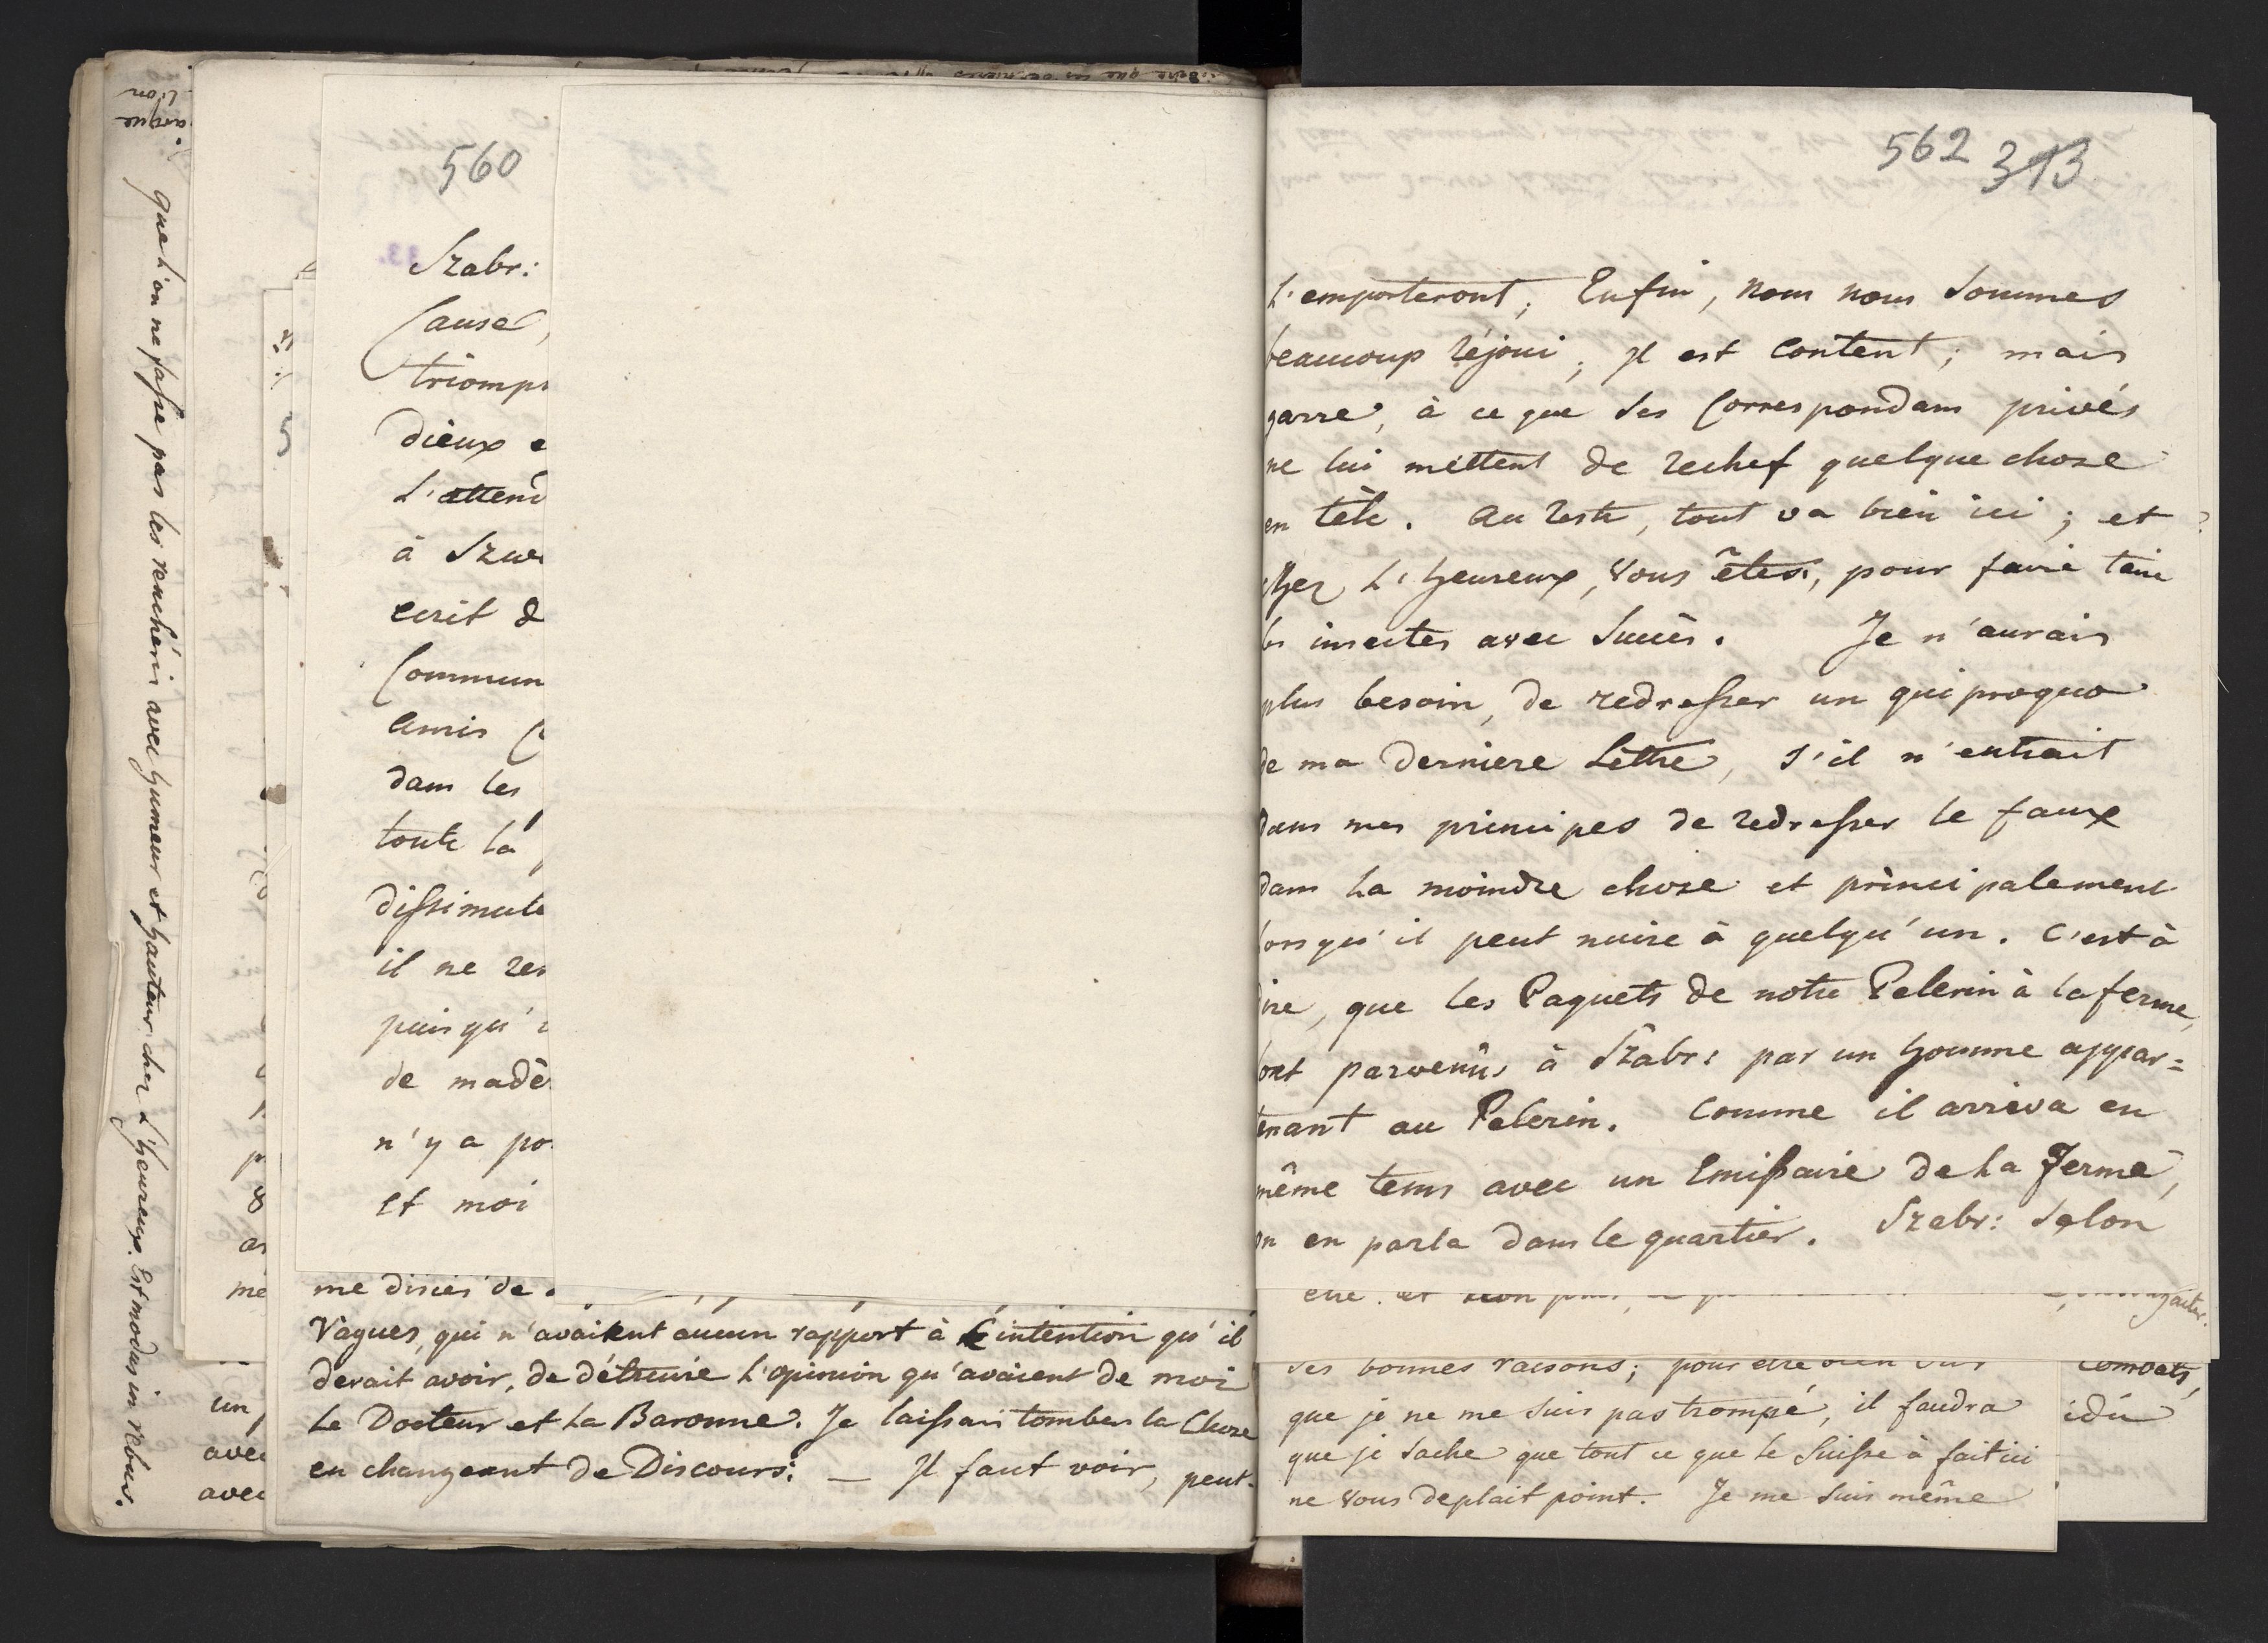 que l'on ne passe pas les renchéris avec humeur et hauteur cher L'heureux. Est modus in rebus.
560
Szabr:
Cause,
triomp
dieux e
L'attend
à Szw
ecrit d
Commun
amis
dans les
toute la
dissimule
il ne res
puisqu'
de madê
n'y a po
et moi
me disies de
Vagues, qui n'avaient aucun rapport à L'intention qu'il
devait avoir, de détruire l'opinion qu'avaient de moi
Le Docteur et la Baronne. Je laissais tomber la Chose
en changeant de Discours: — Il faut voir, peut-
562 313
L'emporteront; Enfin, nous nous sommes
beaucoup réjoui; Il est Content; mais
garre, à ce que ses Correspondans privés
ne lui mettent de rechef quelque chose
en tête. Au reste, tout va bien ici; et
cher L'heureux, vous êtes, pour faire taire
les insectes avec Succès. Je n'aurais
plus besoin, de redresser un quiproquo
de ma derniere Lettre, s'il n'entrait
dans mes principes de redresser le faux
dans la moindre chose et principalement
lorsqu'il peut nuire à quelqu'un. C'est à
dire, que les Paquets de notre Pelerin à la ferme,
sont parvenûs à Szabr: par un homme appar=
tenant au Pelerin. Comme il arriva en
même tems avec un Emissaire de la Ferme,
on en parla dans le quartier. Szabr: Selon
ses bonnes raisons; pour etre bien sur
que je ne me suis pas trompé, il faudra
que je sache que tout ce que le Suisse à fait ici
ne vous deplait point. Je me suis même
un
avec
avec